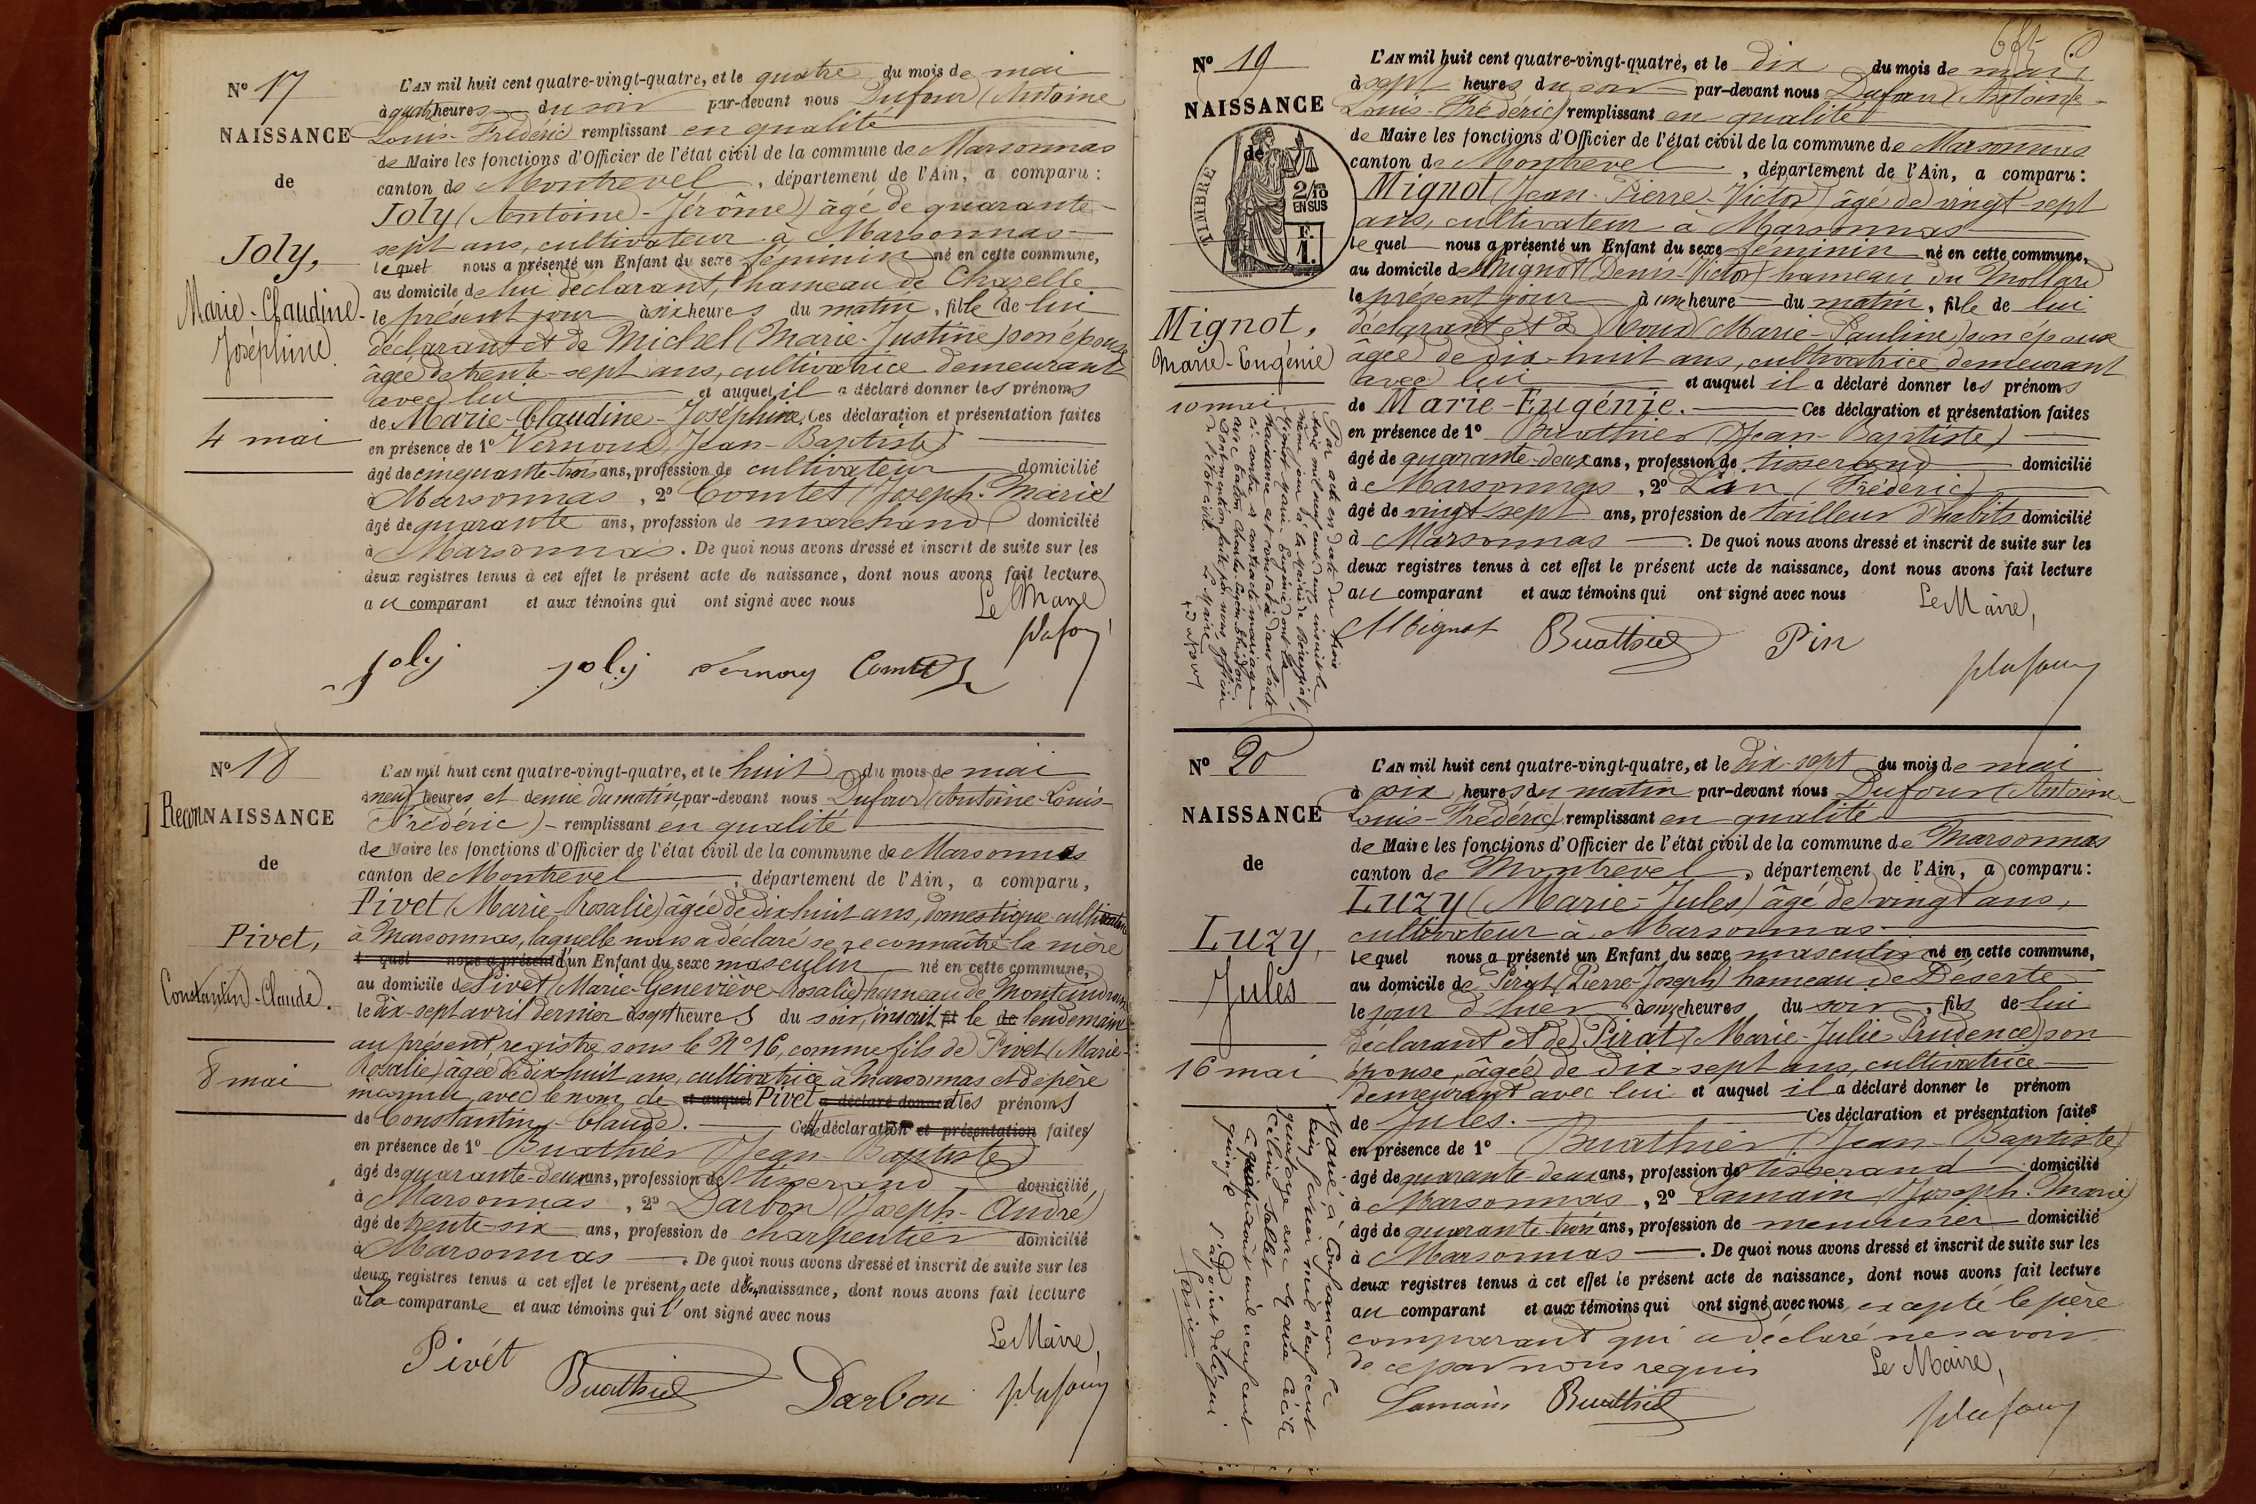 Nº 17
NAISSANCE
de
Joly,
Marie-Claudine-
Joséphine.
4 mai
L'AN mil huit cent quatre-vingt-quatre, et le quatre du mois de mai
à quatre heures du soir par-devant nous Dufour (Antoine
Louis-Frédéric) remplissant en qualité
de Maire les fonctions d'Officier de l'état civil de la commune de Marsonnas
canton de Montrevel, département de l'Ain, a comparu :
Joly (Antoine-Jérôme) âgé de quarante-
sept ans, cultivateur à Marsonnas
lequel nous a présenté un Enfant du sexe féminin né en cette commune,
au domicile de lui déclarant, hameau de Chazelle
le présent jour à six heures du matin, fille de lui
déclarant et de Michel (Marie-Justine) son épouse
âgée de trente-sept ans, cultivatrice demeurant
avec lui et auquel il a déclaré donner les prénoms
de Marie-Claudine-Joséphine. Ces déclaration et présentation faites
en présence de 1º Vernoux (Jean-Baptiste)
âgé de cinquante-trois ans, profession de cultivateur domicilié
à Marsonnas, 2º Comtet (Joseph-Marie)
âgé de quarante ans, profession de marchand domicilié
à Marsonnas. De quoi nous avons dressé et inscrit de suite sur les
deux registres tenus à cet effet le présent acte de naissance, dont nous avons fait lecture
au comparant et aux témoins qui ont signé avec nous
Le Maire
Joly Joly Vernoux Comtet
Nº 18
ReconNAISSANCE
de
Pivet,
Constantin-Claude.
8 mai
L'AN mil huit cent quatre-vingt-quatre, et le huit du mois de mai
à neuf heures et demie du matin par-devant nous Dufour (Antoine-Louis-
Frédéric) - remplissant en qualité
de Maire les fonctions d'Officier de l'état civil de la commune de Marsonnas
canton de Montrevel, département de l'Ain, a comparu,
Pivet (Marie-Rosalie) âgée de dix huit ans, domestique cultivatrice
à Marsonnas, laquelle nous a déclaré se reconnaître la mère
l quel nous a présenté d'un Enfant du sexe masculin né en cette commune,
au domicile de Pivet (Marie-Geneviève-Rosalie) hameau de
le dix-sept avril dernier à sept heures du soir, inscrit le de lendemain
au présent registre sous le Nº 16, comme fils de Pivet (Marie-
Rosalie) âgée de dix-huit ans, cultivatrice à Marsonnas et de père
inconnu, avec le nom de et auquel Pivet a déclaré donner et les prénoms
de Constantin-Claude. Cette déclaration et présentation faites
en présence de 1º Buathier (Jean-Baptiste)
âgé de quarante-deux ans, profession de tisserand domicilié
à Marsonnas, 2º Darbon (Joseph-André)
âgé de trente-six ans, profession de charpentier domicilié
à Marsonnas. De quoi nous avons dressé et inscrit de suite sur les
deux registres tenus à cet effet le présent acte de naissance, dont nous avons fait lecture
à la comparante et aux témoins qui l'ont signé avec nous
Le Maire,
Pivét Buathier Darbon
Nº 19
NAISSANCE
de
TIMBRE
2/10 EN SUS
F. 1.
Mignot,
Marie-Eugénie
10 mai
L'AN mil huit cent quatre-vingt-quatre, et le dix du mois de mai
à sept heures du soir par-devant nous Dufour (Antoine-
Louis-Frédéric) remplissant en qualité
de Maire les fonctions d'Officier de l'état civil de la commune de Marsonnas
canton de Montrevel, département de l'Ain, a comparu :
Mignot (Jean-Pierre-Victor) âgé de vingt-sept
ans, cultivateur à Marsonnas
lequel nous a présenté un Enfant du sexe féminin né en cette commune,
au domicile de Mignot (Denis-Victor) hameau du Mollard
le présent jour à une heure du matin, fille de lui
déclarant et de (Marie-Pauline) son épouse
âgée de dix-huit ans, cultivatrice demeurant
avec lui et auquel il a déclaré donner les prénoms
de Marie-Eugénie. Ces déclaration et présentation faites
en présence de 1º Buathier (Jean-Baptiste)
âgé de quarante-deux ans, profession de tisserand domicilié
à Marsonnas, 2º Pin (Frédéric)
âgé de vingt sept ans, profession de tailleur d'habits domicilié
à Marsonnas. De quoi nous avons dressé et inscrit de suite sur les
deux registres tenus à cet effet le présent acte de naissance, dont nous avons fait lecture
au comparant et aux témoins qui ont signé avec nous
Le Maire,
Mignot Buathier Pin
Par acte en date du trois
mil neuf cent deux inscrit le
même jour à la Mairie de
Mignot Marie-Eugénie dont la
naissance est constatée dans l'acte
ci-contre a contracté mariage
avec
Dont mention faite par nous, officier
de l'état civil. Le Maire
Nº 20
NAISSANCE
de
Luzy,
Jules
16 mai
L'AN mil huit cent quatre-vingt-quatre, et le dix-sept du mois de mai
à six heures du matin par-devant nous Dufour (Antoine-
Louis-Frédéric) remplissant en qualité
de Maire les fonctions d'Officier de l'état civil de la commune de Marsonnas
canton de Montrevel, département de l'Ain, a comparu :
Luzy (Marie-Jules) âgé de vingt ans,
cultivateur à Marsonnas
lequel nous a présenté un Enfant du sexe masculin né en cette commune,
au domicile de Pirat (Pierre-Joseph) hameau de Déserte
le jour d'hier à onze heures du soir, fils de lui
déclarant et de Pirat (Marie-Julie-Prudence) son
épouse, âgée de dix-sept ans, cultivatrice
demeurant avec lui et auquel il a déclaré donner le prénom
de Jules. Ces déclaration et présentation faites
en présence de 1º Buathier (Jean-Baptiste)
âgé de quarante deux ans, profession de tisserand domicilié
à Marsonnas, 2º Lamain (Joseph-Marie)
âgé de quarante-trois ans, profession de menuisier domicilié
à Marsonnas. De quoi nous avons dressé et inscrit de suite sur les
deux registres tenus à cet effet le présent acte de naissance, dont nous avons fait lecture
au comparant et aux témoins qui ont signé avec nous, excepté le père
comparant qui a déclaré ne savoir
de ce par nous requis
Le Maire,
Lamain Buathier
Marié à Confrançon le
cinq février mil neuf cent
quatorze avec Maria Cécile